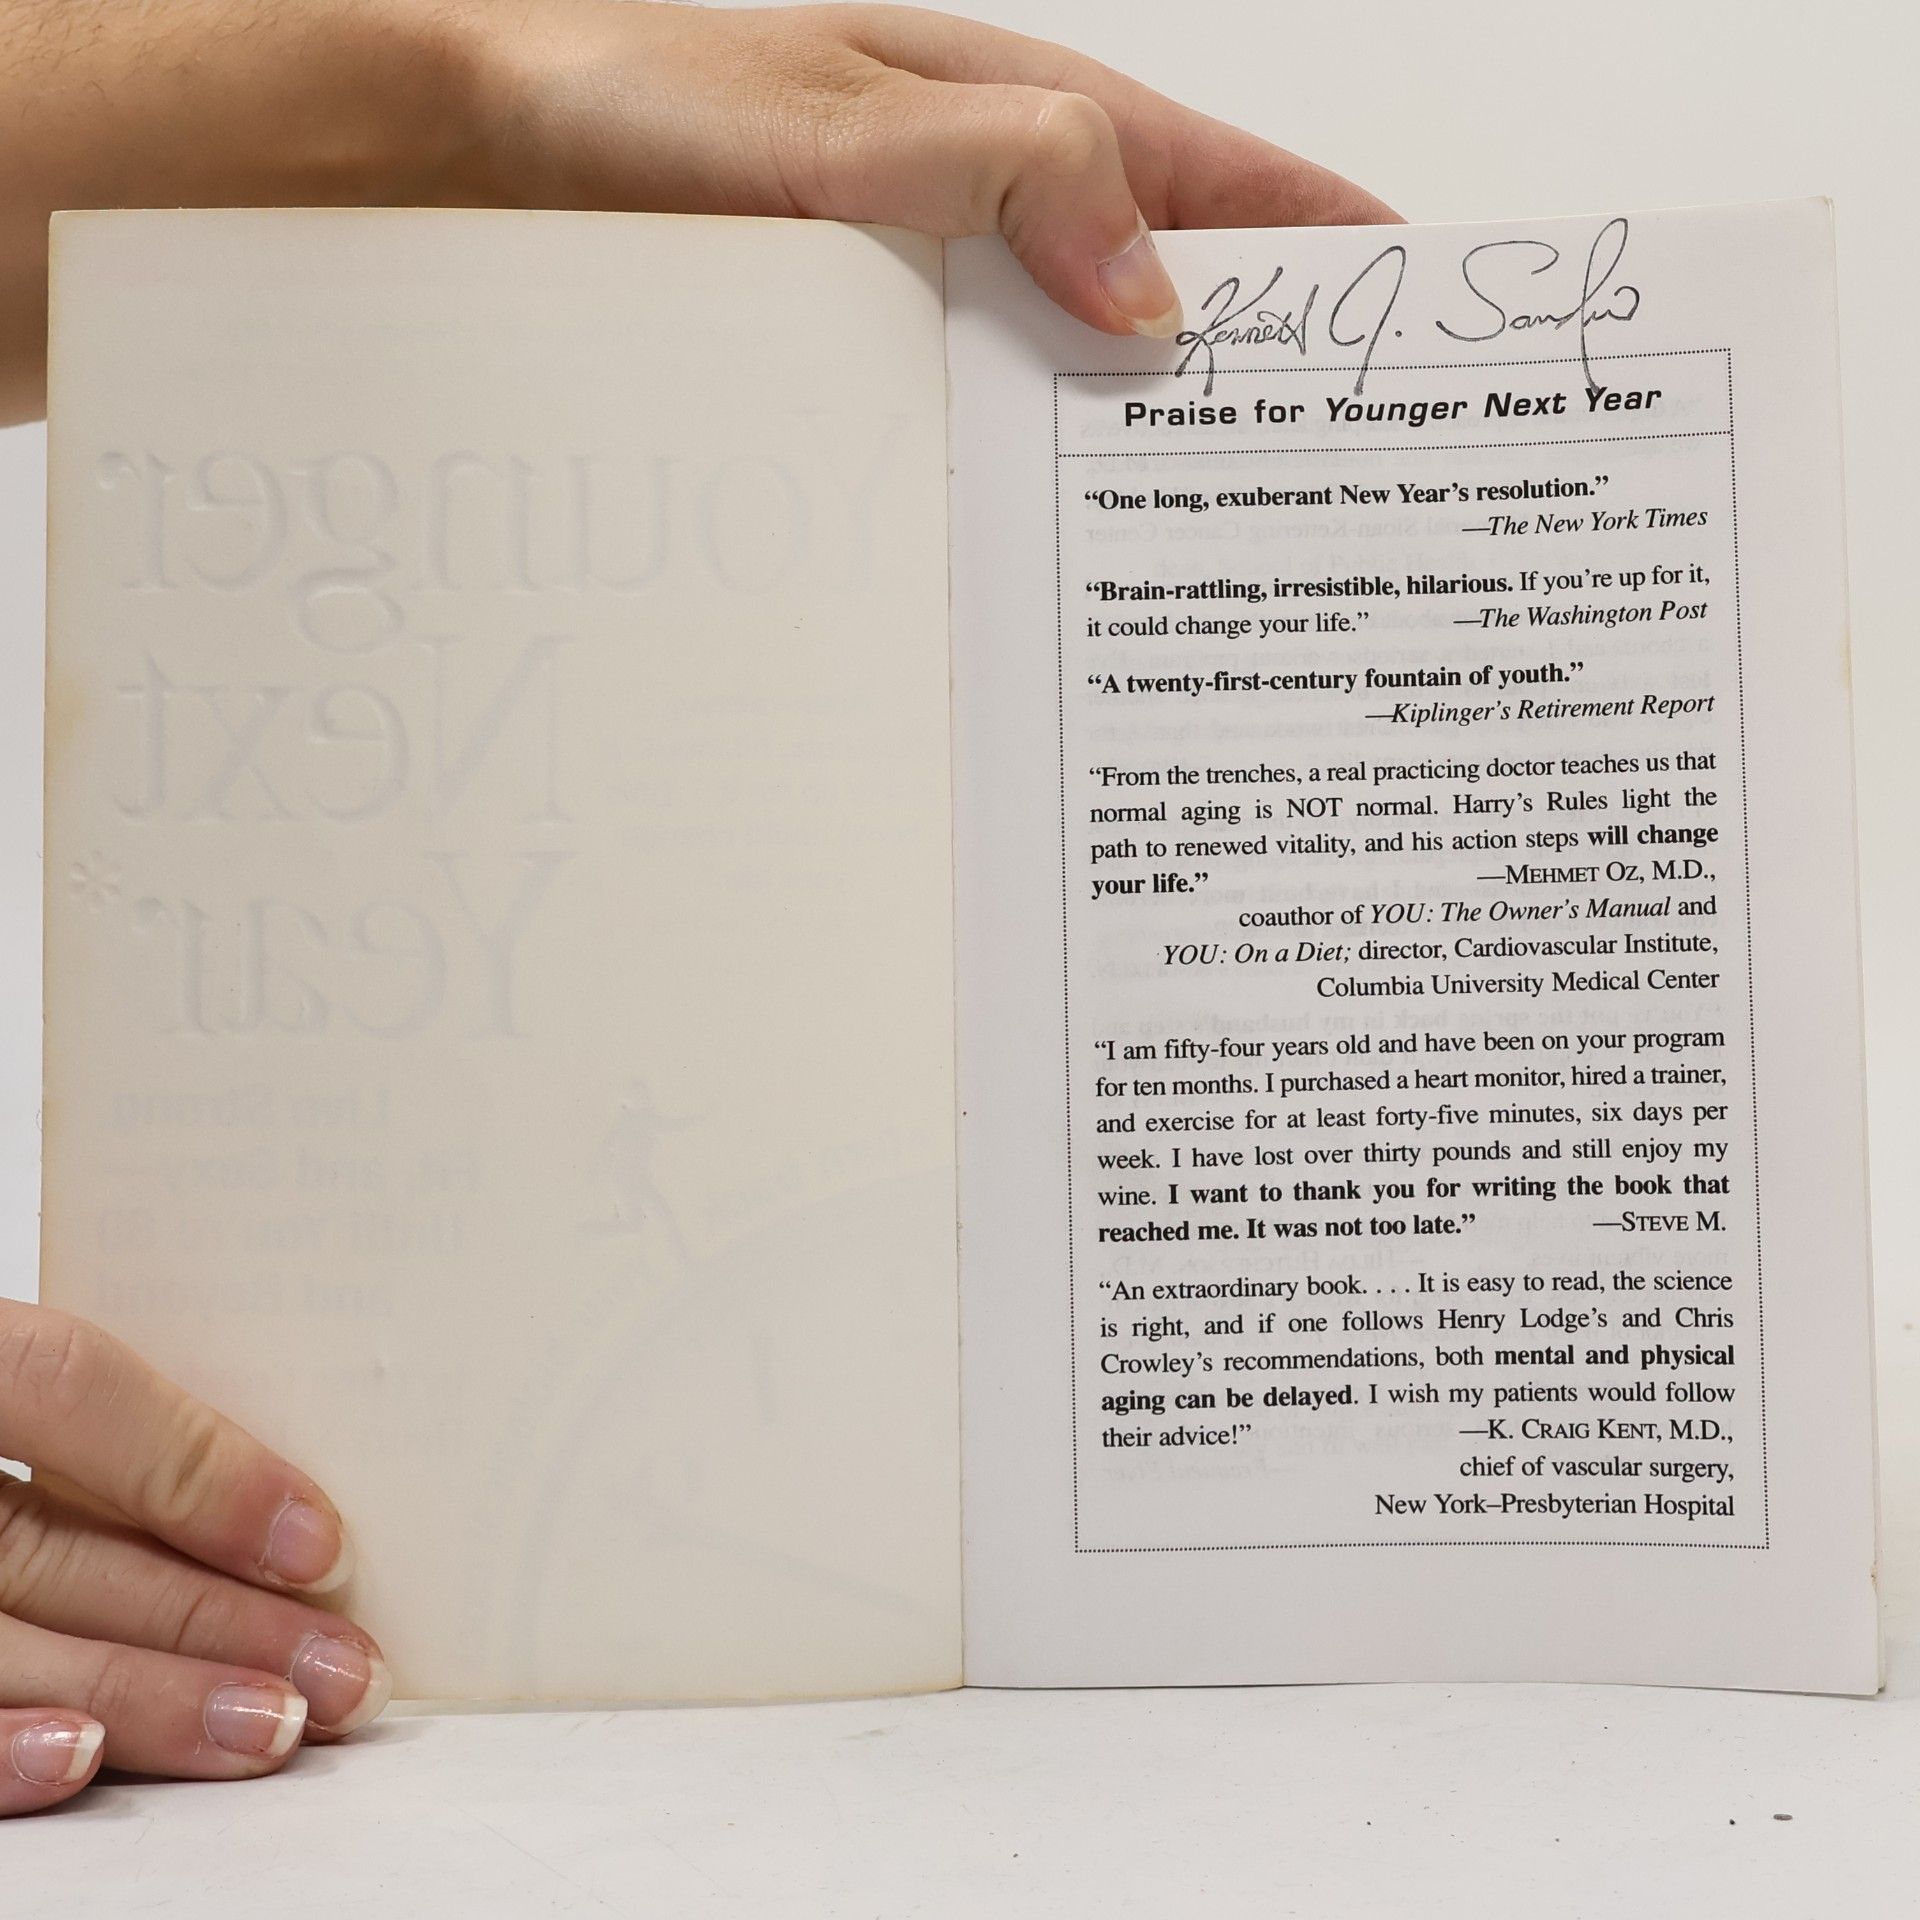 Kenneth J.
Praise for Younger Next Year
“One long, exuberant New Year’s resolution.”
—The New York Times
“Brain-rattling, irresistible, hilarious. If you’re up for it,
it could change your life.” —The Washington Post
“A twenty-first-century fountain of youth.”
—Kiplinger’s Retirement Report
“From the trenches, a real practicing doctor teaches us that
normal aging is NOT normal. Harry’s Rules light the
path to renewed vitality, and his action steps will change
your life.” —MEHMET OZ, M.D.,
coauthor of YOU: The Owner’s Manual and
YOU: On a Diet; director, Cardiovascular Institute,
Columbia University Medical Center
“I am fifty-four years old and have been on your program
for ten months. I purchased a heart monitor, hired a trainer,
and exercise for at least forty-five minutes, six days per
week. I have lost over thirty pounds and still enjoy my
wine. I want to thank you for writing the book that
reached me. It was not too late.” —STEVE M.
“An extraordinary book. . . . It is easy to read, the science
is right, and if one follows Henry Lodge’s and Chris
Crowley’s recommendations, both mental and physical
aging can be delayed. I wish my patients would follow
their advice!” —K. CRAIG KENT, M.D.,
chief of vascular surgery,
New York–Presbyterian Hospital